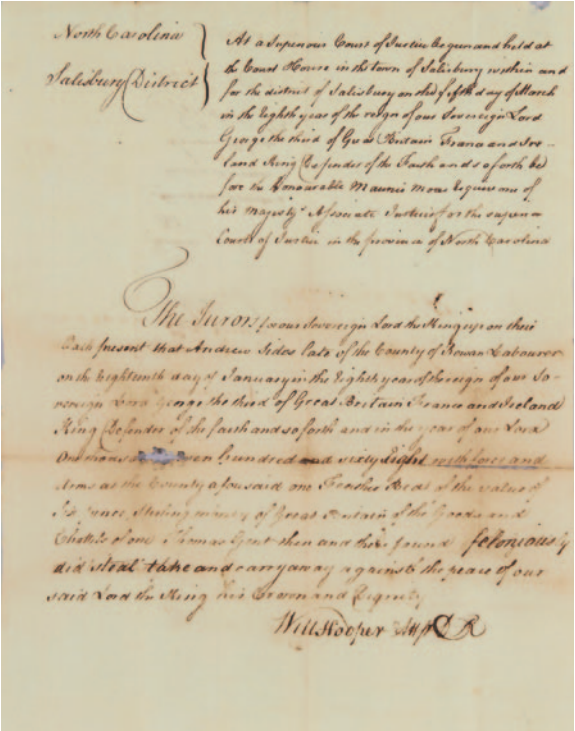 North Carolina
Salisbury District
At a Superiour Court of Justice begun and held at
the Court House in the town of Salisbury within and
for the district of Salisbury on the fifth day of March
in the Eighth year of the reign of our Sovereign Lord
George the third of Great Britain France and Ire-
land King Defender of the Faith and so forth be
fore the Honourable Maurice Moore Esquire one of
his Majestys Associate Justices for the superior
Court of Justice in the province of North Carolina
The Jurors for our Sovereign Lord the King upon their
Oath present that Andrew Sides late of the County of Rowan Labourer
on the Eighteenth day of January in the Eighth year of the reign of our So-
vereign Lord George the third of Great Britain France and Ireland
King Defender of the faith and so forth and in the year of our Lord
One thousand seven hundred and sixty Eight with force and
Arms at the County aforesaid one Feather Bed of the value of
pence Sterling money of Great Britain of the Goods and
Chattels of one Thomas Gent then and there found feloniously
did steal take and carry away against the peace of our
said Lord the King his Crown and Dignity
Will Hooper Att